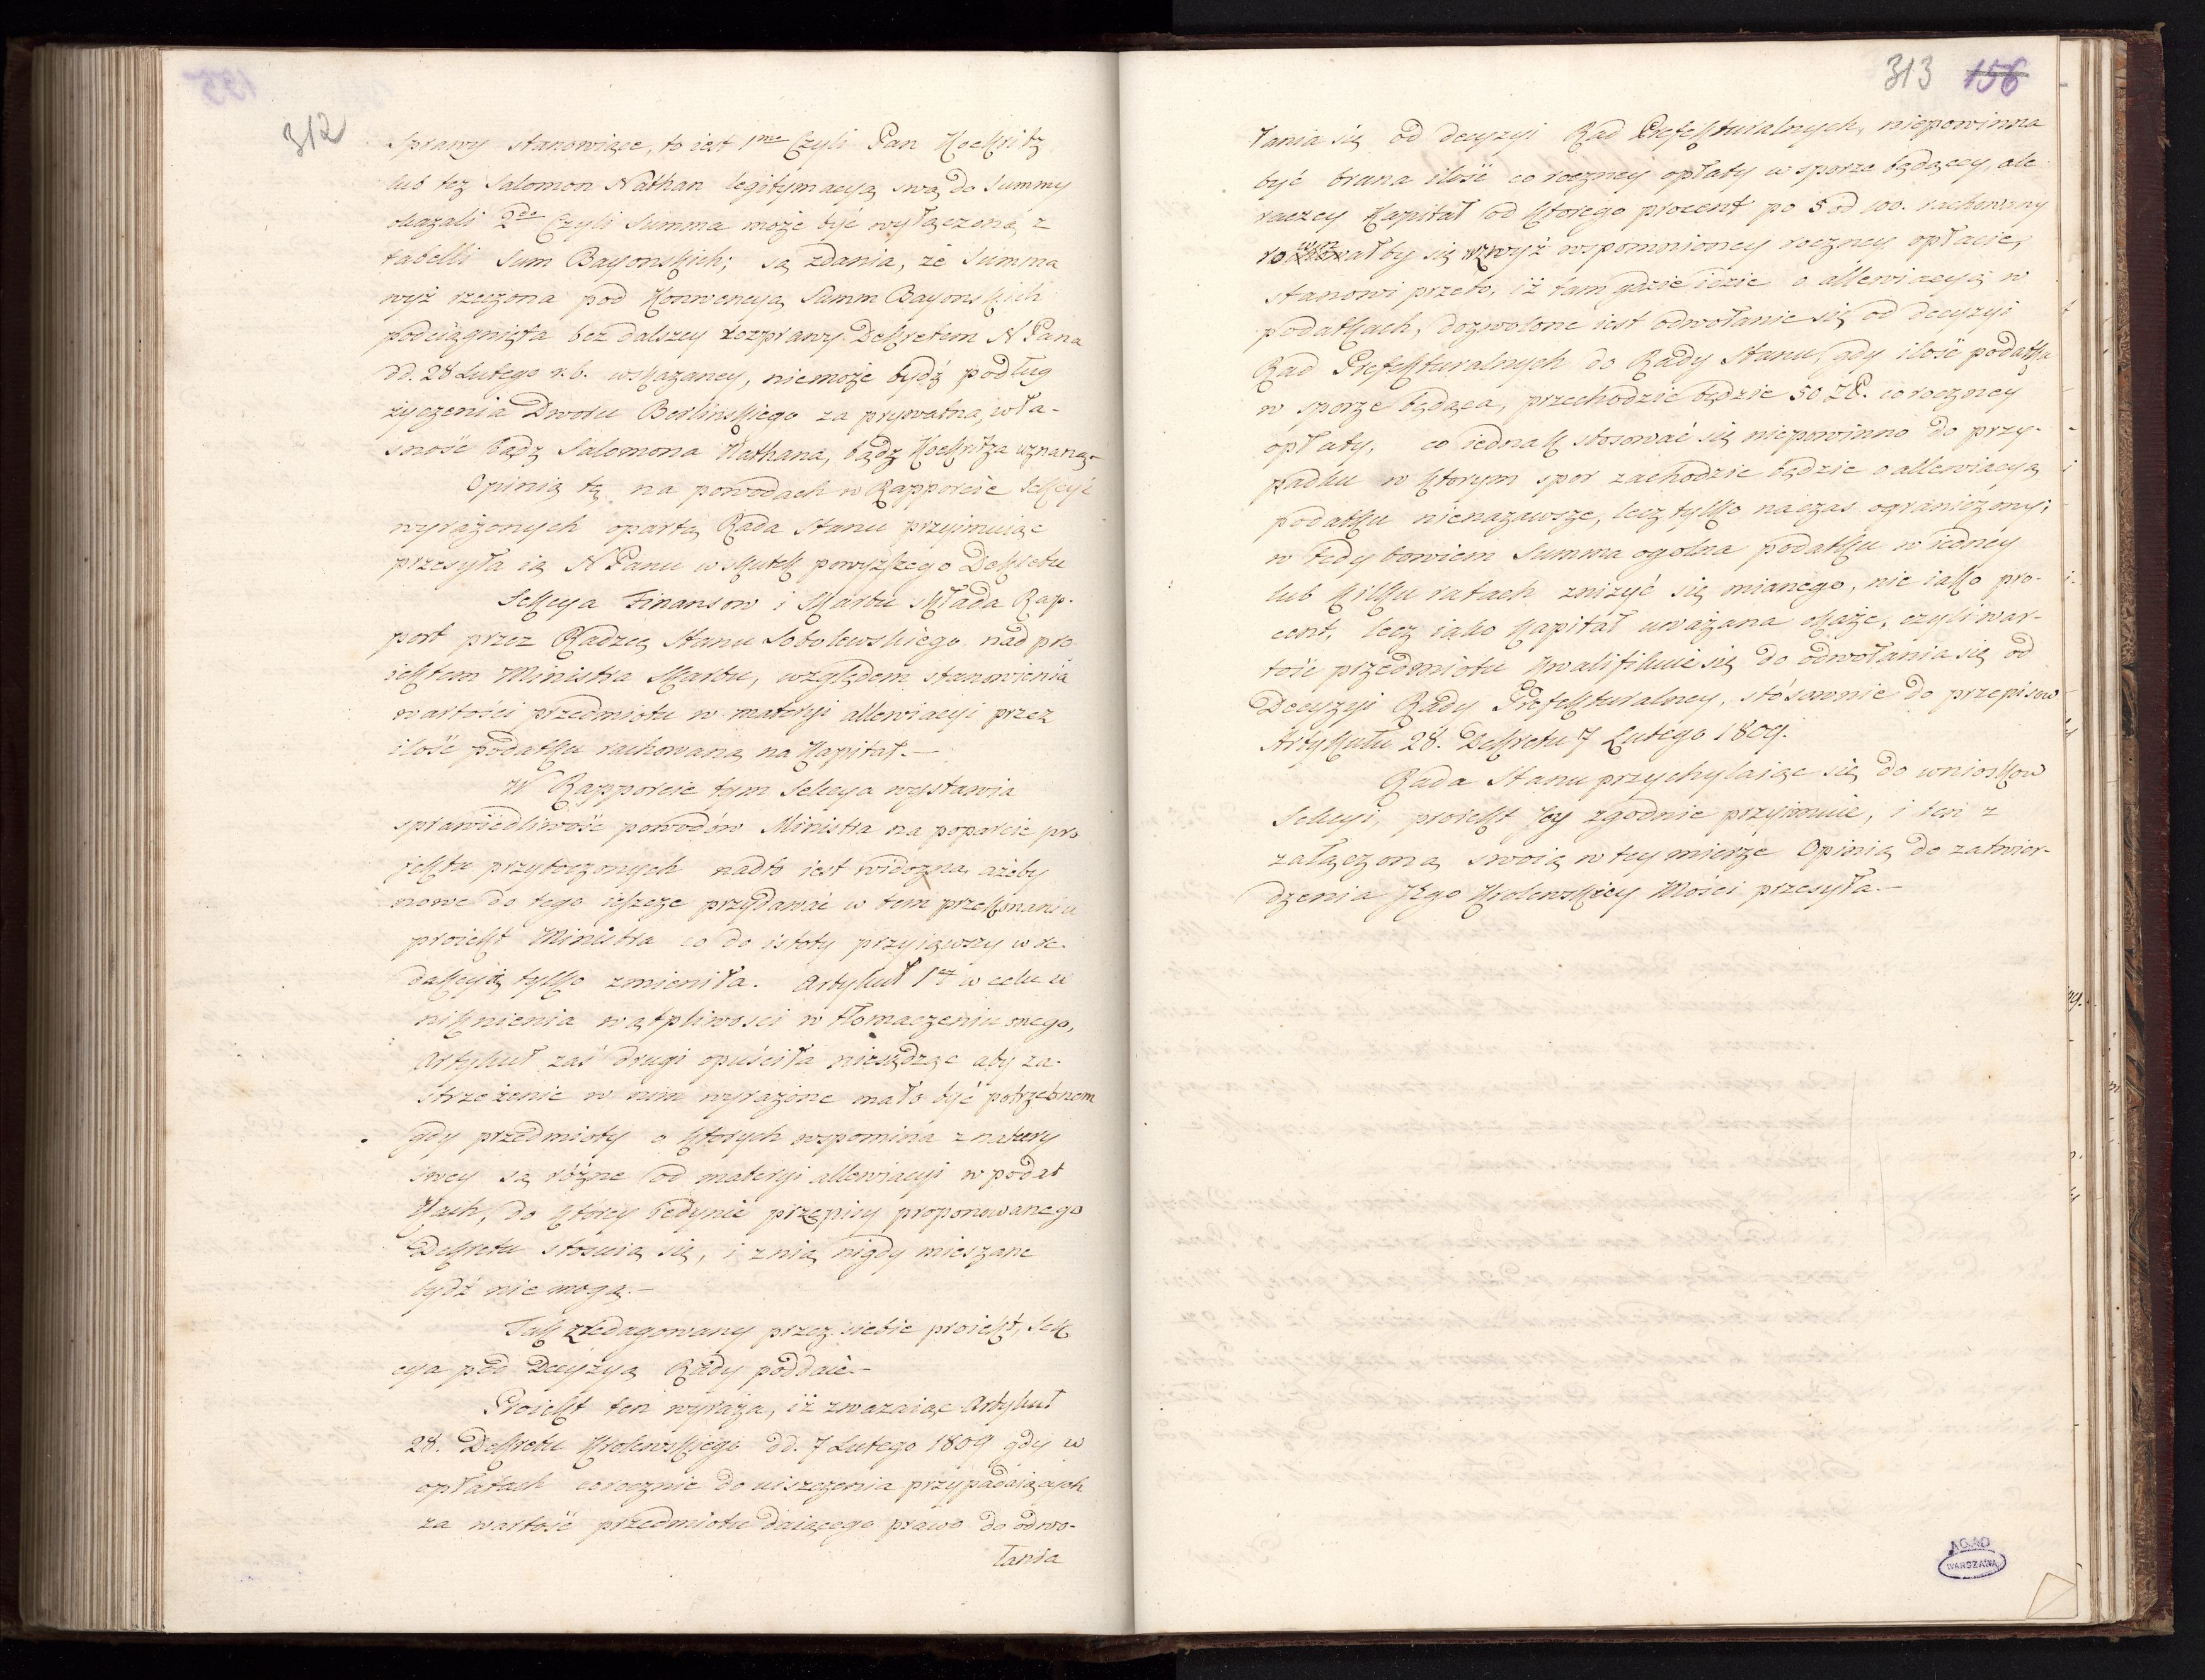 312
Sprawy stanowiące, to iest 1mo Czyli Pan Kockritz
lub tez Salomon Nathan legitymacyą swą do Summy
okazali 2do Czyli Summa może być wyłączoną z
tabelli Sum Bayonskich; są zdania, że Summa
wyż rzeczona pod Konwencyą Summ Bayonskich
podciągnięta bez dalszey rozprawy Dekretem N Pana
dd. 28 Lutego r. b. wskazaney, niemoże bydź podług
życzenia Dworu Berlińskiego za prywatną wła-
sność bądz Salomona Nathana, bądz Kockritza uznaną.-
Opinią tę na powodach w Rapporcie Sekcyi
wyrażonych opartą Rada Stanu przyimuiąc
przesyła ią N Panu wskutek powyższego Dekretu
Sekcya Finansow i Skarbu składa Rap-
port przez Radzcę Stanu Sobolewskiego nad pro
iektem Ministra Skarbu, względem stanowienia
wartości przedmiotu w materyi allewiacyi przez
ilość podatku rachowaną na Kapitał.-
W Rapporcie tym Sekcya wystawia
sprawiedliwość powodów Ministra na poparcie pro
jektu przytoczonych nadto iest widoczna, ażeby
nowe do tego ieszcze przydawać w tem przekonaniu
proiekt Ministra co do istoty przyiąwszy w re-
dakcyią tylko zmieniła. Artykuł 1szy w celu u
niknienia wątpliwosci w tłomaczeniu onego,
Artykuł zaś drugi opuściła niesądząc aby za-
strzeżenie w nim wyrażone mało być potrzebnem
gdy przedmioty o ktorych wspomina z natury
swey są różne od materyi allewiacyi w podat
kach, do którey iedynie przepisy proponowanego
Dekretu stosuią się, i z nią nigdy mieszane
bydź nie mogą.-
Tak zredagowany przez siebie proiekt, Sek
cya pod Decyzyą Rady poddaie.-
Proiekt ten wyraża, iż zwazaiąc Artykuł
28. Dekretu Krolewskiego dd. 7 Lutego 1809 gdy w
opłatach corocznie do uiszczenia przypadaiących
za wartość przedmiotu daiącego prawo do odwo-
łania
313 156
łania się od decyzyi Rad Prefekturalnych, niepowinna
być brana ilość co roczney opłaty w sporze będącey, ale
raczey Kapitał od ktorego procent po 5 od 100. rachowany
wyż wspomnioney roczney opłacie,
stanowi przeto, iż tam gdzie idzie o allewiacyią w
podatkach, dozwolone iest odwołanie się od decyzyi
Rad Prefekturalnych do Rady Stanu, gdy ilość podatku
w sporze będąca, przechodzić będzie 50 ZP. co roczney
opłaty, co iednak stosować się niepowinno do przy-
padku w ktorym spor zachodzić będzie o allewiacyą
podatku nienazawsze, lecz tylko naczas ograniczony;
w tedy bowiem Summa ogolna podatku w iedney
lub kilku ratach zniżyć się mianego, nie iako pro-
cent, lecz iako Kapitał uważana okaże, czyli war-
tość przedmiotu kwalifikuie się do odwołania się od
Decyzyi Rady Prefekturalney, stósownie do przepisow
Artykułu 28. Dekretu 7 Lutego 1809.
Rada Stanu przychylaiąc się do wnioskow
Sekcyi, proiekt Jey zgodnie przyimuie, i ten z
załączoną swoią w tey mierze Opinią do zatwier-
dzenia JEgo Krolewskiey Mości przesyła.-
AGAD
WARSZAWA